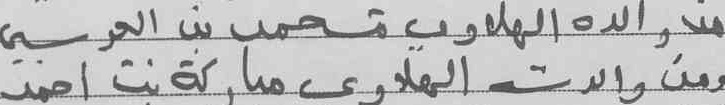 من والده الهلاوي محمد بن العربي
ومن والدته الهلاوي مباركة بنت احمد